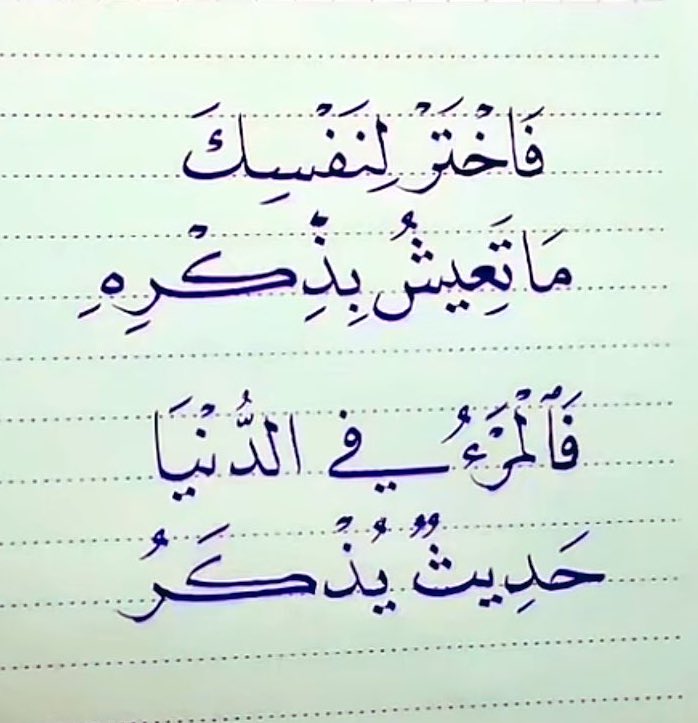 فَاخْتَرْ لِنَفْسِكَ
مَا تَعِيشُ بِذِكْرِهِ
فَٱلْمَرْءُ فِي الدُّنْيَا
حَدِيثٌ يُذْكَرُ